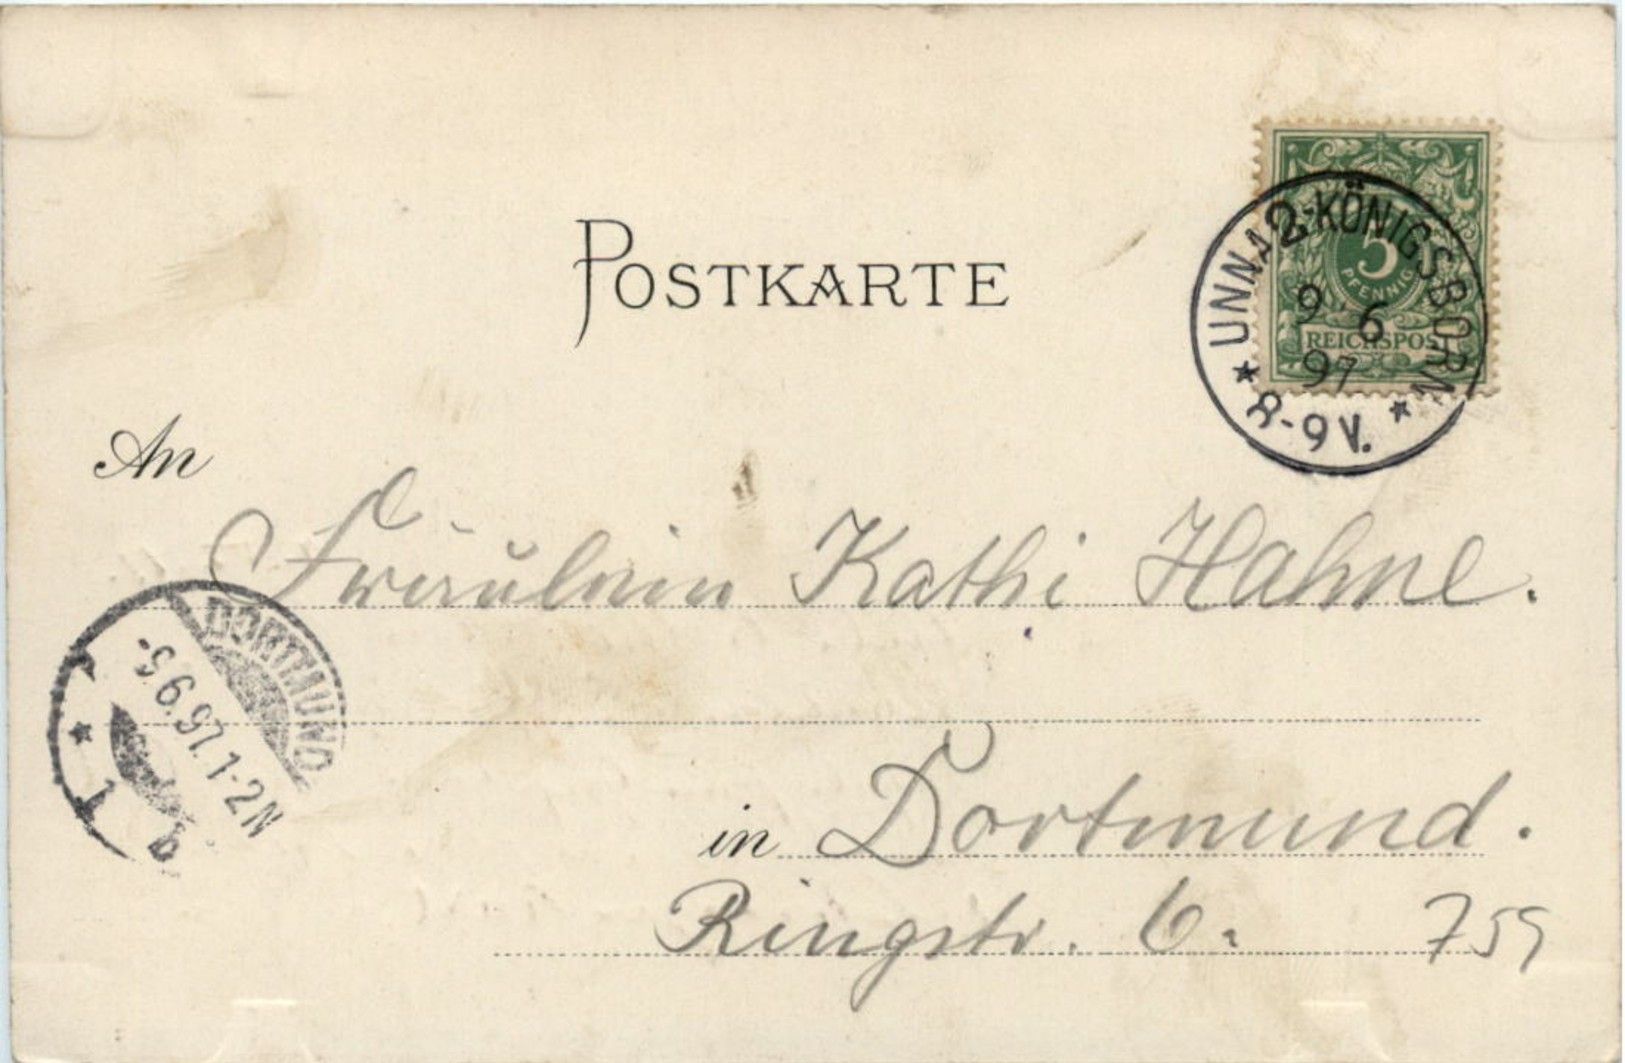 POSTKARTE
UNNA 2-KÖNIGSBORN
5
PFENNIG
9 6
REICHSPOST
97
8-9 V.
An
Fräulein Kathi Hahne.
DORTMUND
9.6.97. 1-2N
1
in Dortmund.
Ringstr. 6. 759